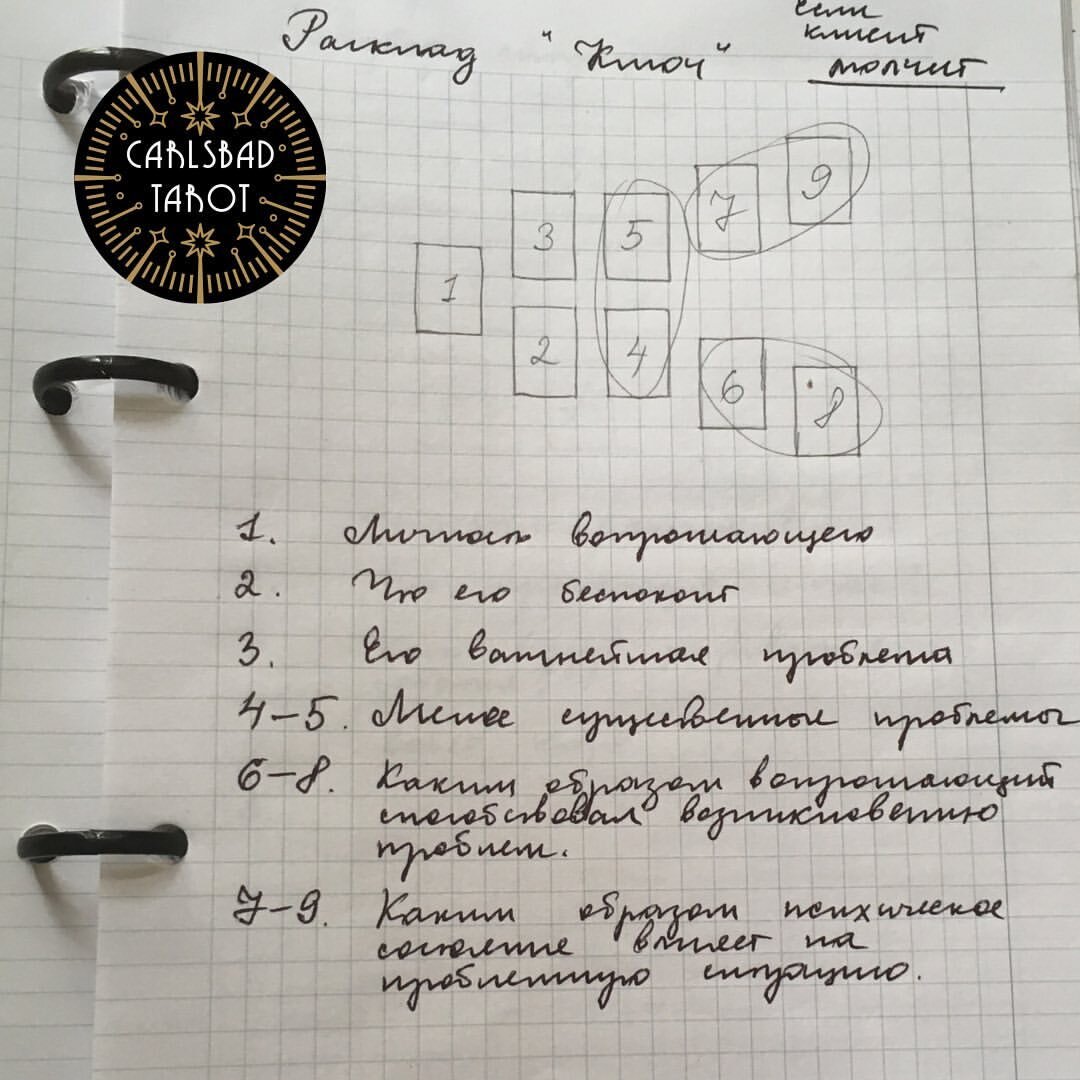 если
клиент
молчит
Расклад "Ключ"
CARLSBAD
TAROT
9
7
5
3
1
2
4
6
8
1. Личность вопрошающего
2. Что его беспокоит
3. Его важнейшая проблема
4-5. Менее существенные проблемы
6-8. Каким образом вопрошающий
способствовал возникновению
проблем.
7-9. Каким образом психическое
состояние влияет на
проблемную ситуацию.